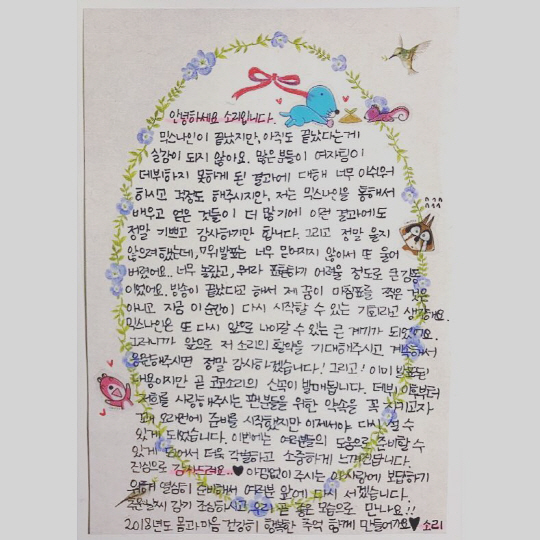 안녕하세요 소리입니다.
믹스나인이 끝났지만, 아직도 끝났다는게
실감이 되지 않아요. 많은분들이 여자팀이
데뷔하지 못하게 된 결과에 대해 너무 아쉬워
하시고 걱정도 해주시지만, 저는 믹스나인을 통해서
배우고 얻은 것들이 더 많기에 이런 결과에도
정말 기쁘고 감사하기만 합니다. 그리고 정말 울지
않으려했는데, 7위발표는 너무 믿어지지 않아서 또 울어
버렸어요.. 너무 놀랐고, 뭐라 표현하기 어려울 정도로 큰 감동
이었어요. 방송이 끝났다고 해서 제 꿈이 마침표를 찍은 것은
아니고 지금 이 순간이 다시 시작할 수 있는 기회라고 생각해요.
믹스나인은 또 다시 앞으로 나아갈 수 있는 큰 계기가 되었구요.
그러니까 앞으로 저 소리의 활약을 기대해주시고 계속해서
응원해주시면 정말 감사하겠습니다! 그리고! 이미 발표된
내용이지만 곧 코코소리의 신곡이 발매됩니다. 데뷔 이후부터
저희를 사랑해주시는 팬분들을 위한 약속을 꼭 지키고자
꽤 오래전에 준비를 시작했지만 이제서야 다시 설 수
있게 되었습니다. 이번에는 여러분들의 도움으로 준비할 수
있게 되어서 더욱 각별하고 소중하게 느껴진답니다.
진심으로 감사드려요..♥ 아낌없이 주시는 이 사랑에 보답하기
위해 열심히 준비해서 여러분 앞에 다시 서겠습니다.
추운날씨 감기 조심하시고 우리 곧 좋은 모습으로 만나요!!
2018년도 몸과 마음 건강히 행복한 추억 함께 만들어가요♥ 소리